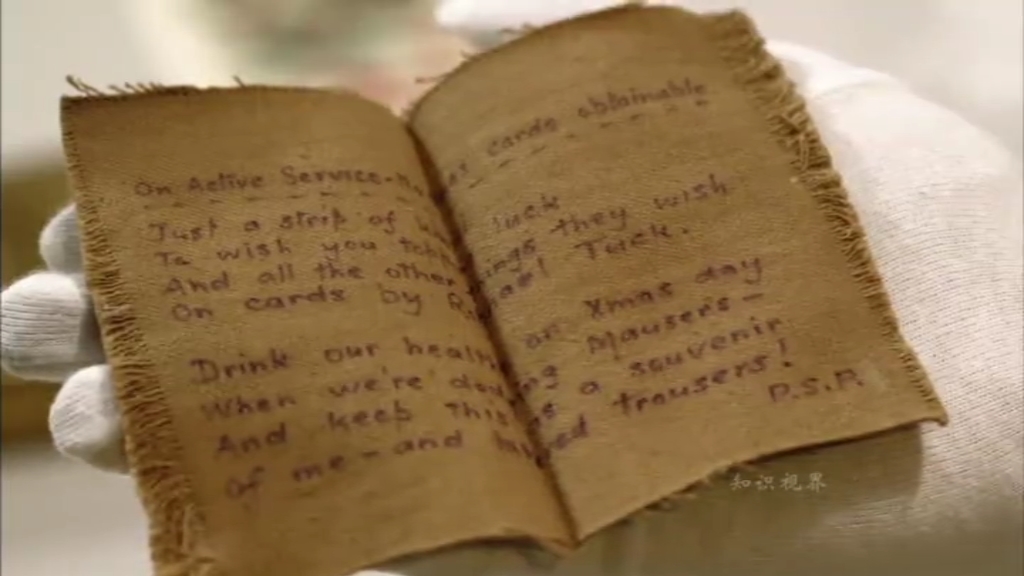 On Active Service - cards obtainable
Just a strip of
To wish you luck
And all the other things they wish
On cards by Tuck.
Drink our health on Xmas day
When we're dodging Mausers —
And keep this as a souvenir
of me — and trousers!
P.S.P.
知识视界